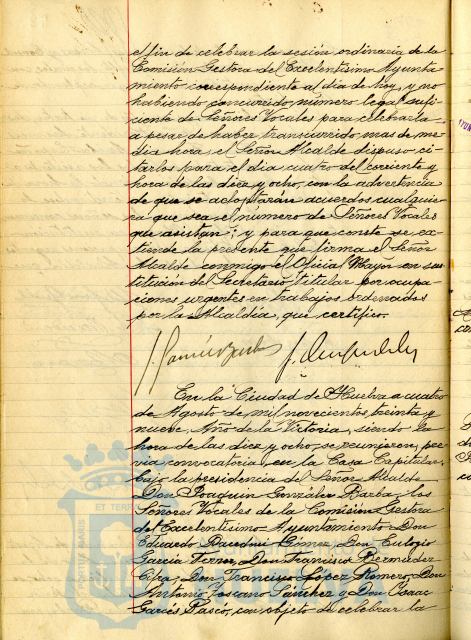 el fin de celebrar la sesión ordinaria de la
Comisión Gestora del Excelentísimo Ayunta-
miento correspondiente al día de hoy, y no
habiendo concurrido número legal sufi-
ciente de Señores Vocales para celebrarla
a pesar de haber transcurrido mas de me-
dia hora, el Señor Alcalde dispuso ci-
tarlos para el día cuatro del corriente y
hora de las diez y ocho, con la advertencia
de que se adoptarán acuerdos cualquie-
ra que sea el número de Señores Vocales
que asistan; y para que conste se ex-
tiende la presente que firma el Señor
Alcalde conmigo el Oficial Mayor en sus-
titución del Secretario titular por ocupa-
ciones urgentes en trabajos ordenados
por la Alcaldía, que certifico.
En la Ciudad de Huelva a cuatro
de Agosto de mil novecientos treinta y
nueve, Año de la Victoria, siendo la
hora de las diez y ocho, se reunieron, pre-
via convocatoria, en la Casa Capitular,
bajo la presidencia del Señor Alcalde
Don Joaquin González Barba, los
Señores Vocales de la Comisión Gestora
del Excelentísimo Ayuntamiento Don
Eduardo Gómez, Don Eulogio
García Don Francisco Bermúdez
Don Francisco López Romero, Don
Antonio Toscano Sánchez y Don Isaac
Garcés Pascó, con objeto de celebrar la